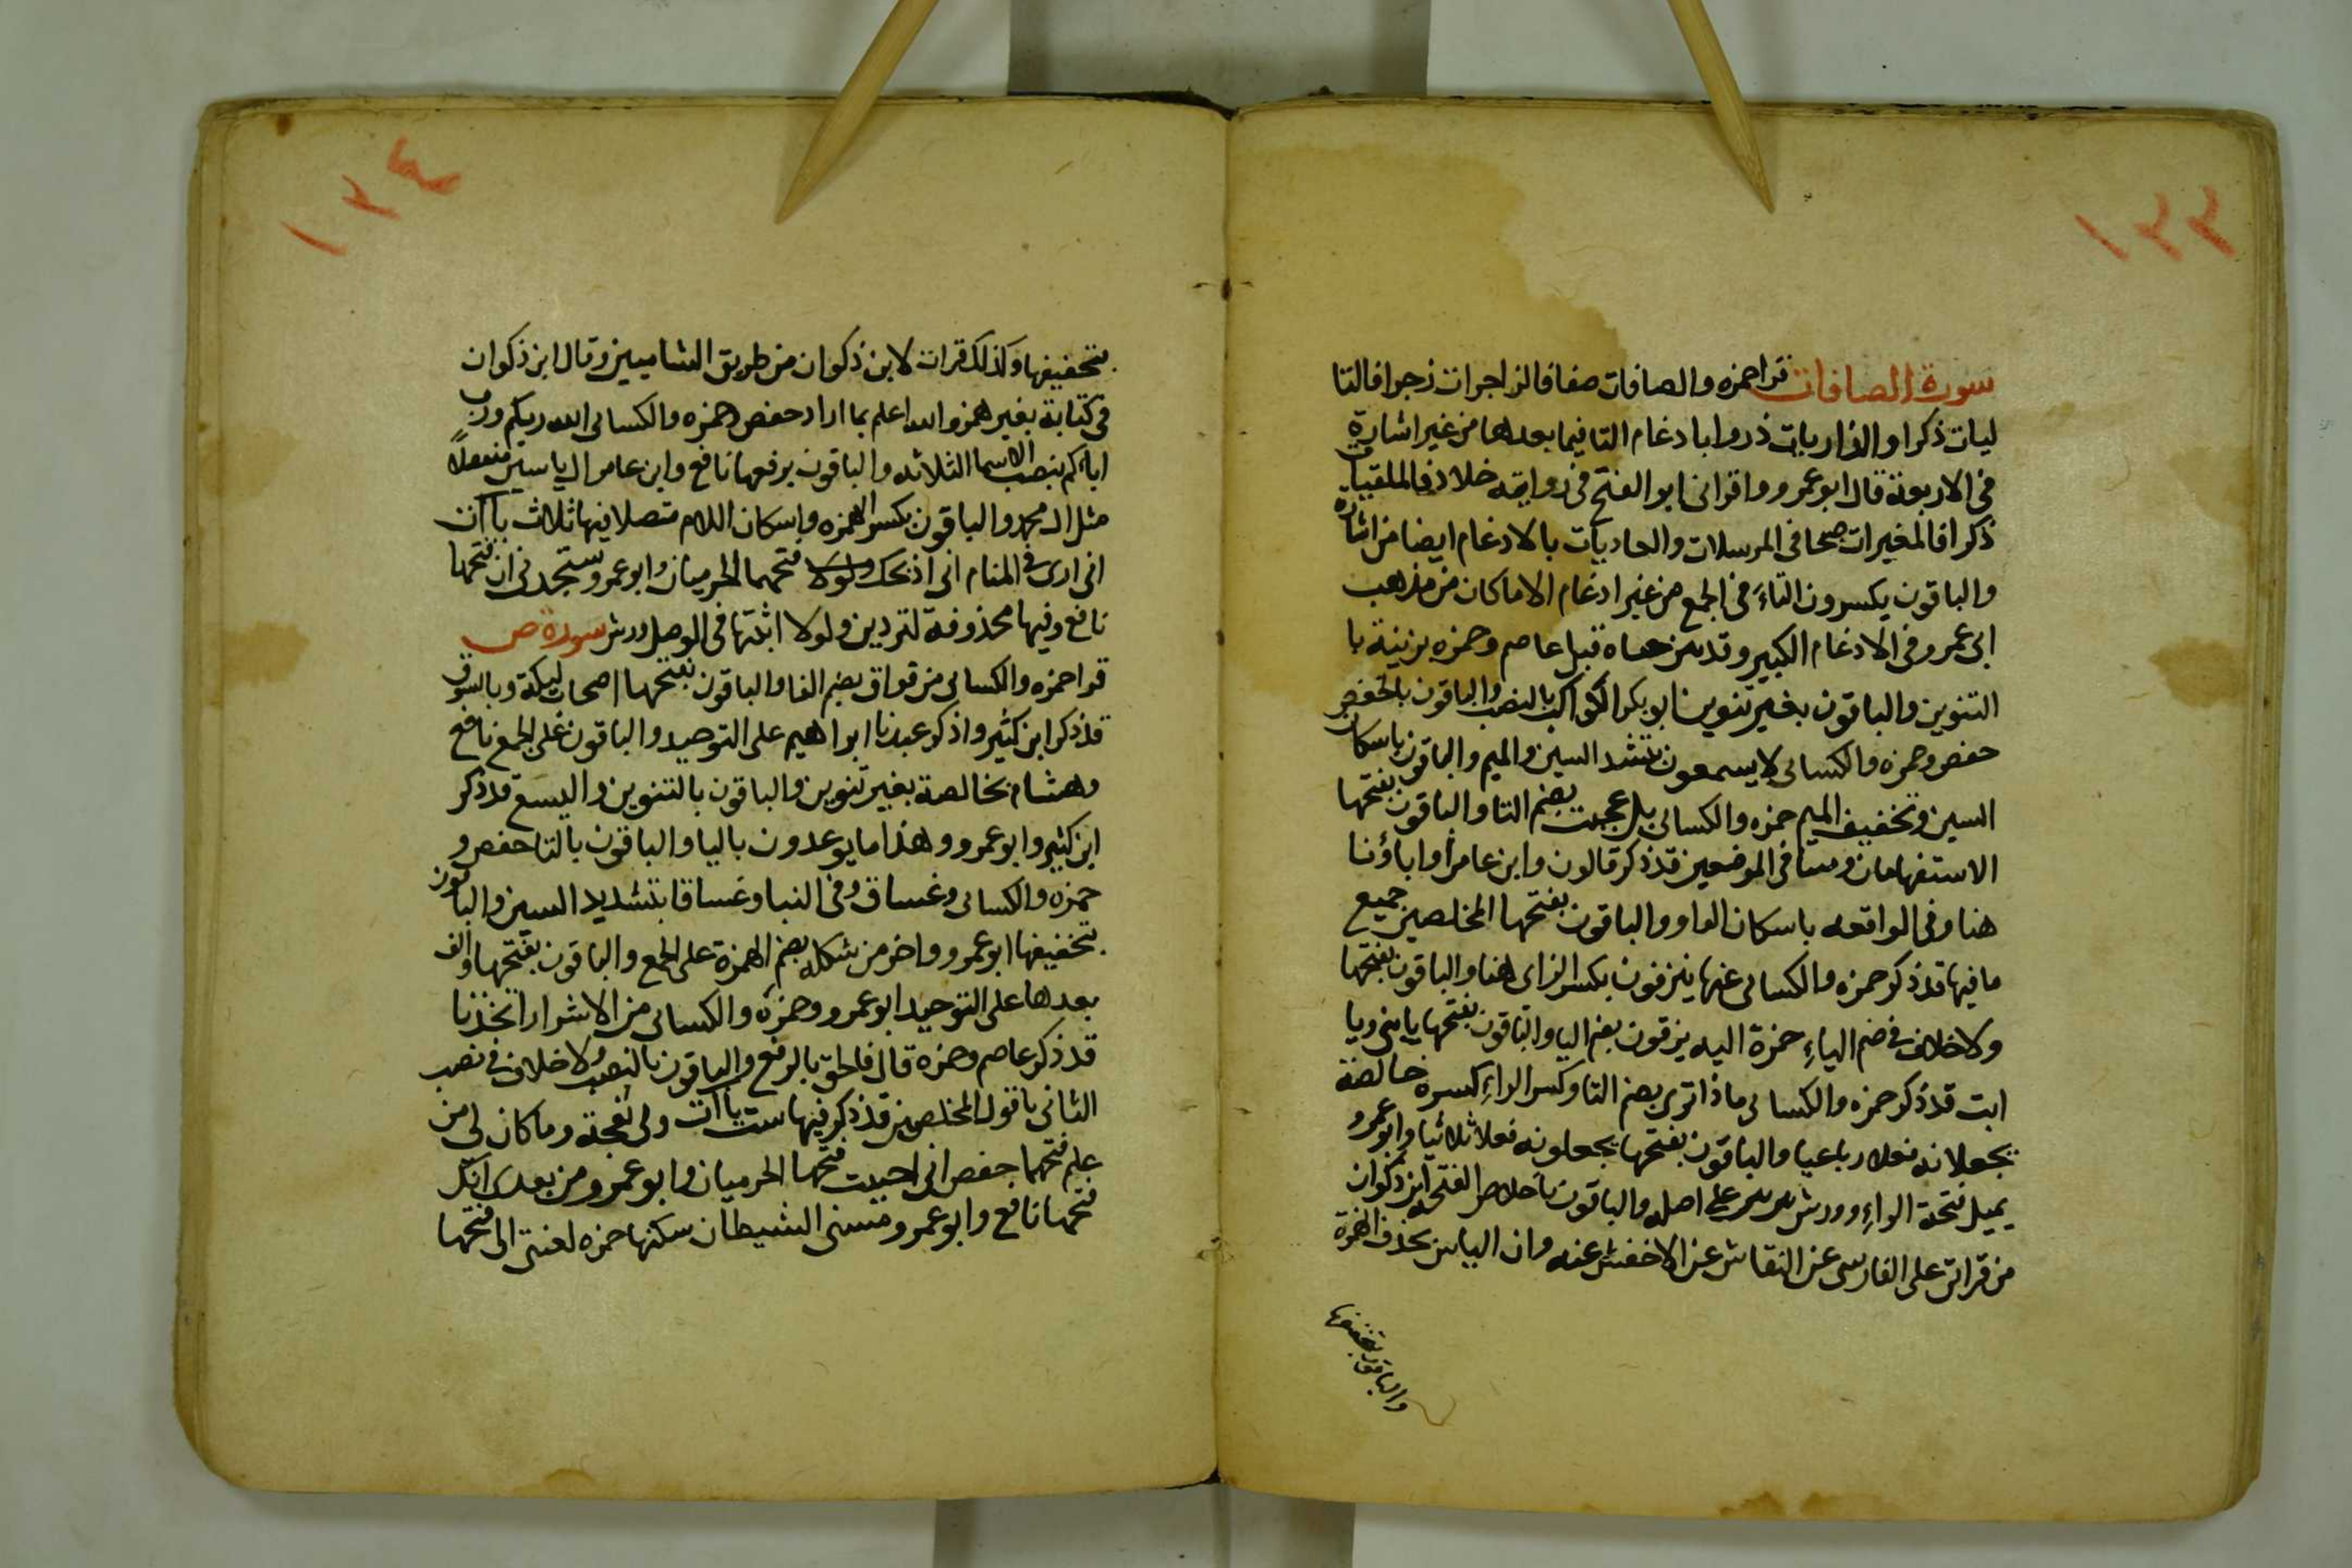 ١٣٣
سورة الصافات قرا حمزه والصافات صفا فالزاجرات زجرا فالتا
ليات ذكرا والذاريات ذروا بادغام التا فيما بعدها من غير اشارة
فى الاربعة قال ابو عمرو واقرانى ابو الفتح فى رواية خلاد فالملقيات
ذكرا فالمغيرات صبحا فى المرسلات والعاديات بالادغام ايضا من اشارة
والباقون يكسرون التاء فى الجمع من غير ادغام الا ما كان من مذهب
ابى عمرو فى الادغام الكبير وقد قبل عاصم وحمزه بزينة با
التنوين والباقون بغير تنوين ابو بكر الكواكب بالنصب والباقون بالخفض
حفص وحمزه والكسائى لا يسمعون بتشد السين والميم والباقون باسكان
السين وتخفيف الميم حمزه والكسائى بل عجبت بضم التا والباقون بفتحها
الاستفهامان ومتنا فى الموضعين قد ذكر قالون وابن عامر أو اباؤنا
هنا وفى الواقعه باسكان الواو والباقون بفتحها المخلصين جميع
ما فيها قد ذكر حمزه والكسائى عنها ينزفون بكسر الزاى هنا والباقون بفتحها
ولا خلاف فى ضم الياء حمزة اليه يزفون بضم اليا والباقون بفتحها يا بنى ويا
ابت قد ذكر حمزه والكسائى ماذا ترى بضم التا وكسر الراء كسره خالصة
يجعلانه فعلا رباعيا والباقون بفتحها يجعلونه فعلا ثلاثيا وابو عمرو
يميل فتحة الراء وورش على اصله والباقون باخلاص الفتحه ابن ذكوان
من قراتى على الفارسى عن النقاش عن الاخفش عنه وان الياس بحذف الهمزة
والباقون بتحفيفها
١٣٤
بتحفيفها وكذلك قرات لابن ذكوان من طريق الشاميين وقال ابن ذكوان
فى كتابة بغير همز والله اعلم بما اراد حفص وحمزه والكسائى الله ربكم ورب
ابائكم بنصب الاسما الثلاثه والباقون برفعها نافع وابن عامر ال ياسين منفصلاً
مثل ال محمد والباقون بكسر الهمزه واسكان اللام متصلا فيها ثلاث ياآت
انى ارى فى المنام انى اذبحك ولولا فتحهما الحرميان وابو عمرو ستجدنى ان فتحها
نافع وفيها محذوفة لتردين ولولا اثبتها فى الوصل ورش سورة ص
قرا حمزه والكسائى من فواق بضم الفا والباقون بفتحها اصحاب ليكة وبالسوق
قد ذكر ابن كثير واذكر عبدنا ابراهيم على التوحيد والباقون على الجمع نافع
وهشام بخالصة بغير تنوين والباقون بالتنوين واليسع قد ذكر
ابن كثير وابو عمرو وهذا ما يوعدون باليا والباقون بالتا حفص و
حمزه والكسائى وغساق وفى النبا وغساقا بتشديد السين والباقون
بتخفيفها ابو عمرو واخر من شكله بضم الهمزة على الجمع والباقون بفتحها والف
بعدها على التوحيد ابو عمرو وحمزه والكسائى من الاشرار اتخذنا
قد ذكر عاصم وحمزه قال فالحق بالرفع والباقون بالنصب ولا خلاف فى نصب
الثانى با قول المخلصين قد ذكر فيها ست ياآت ولى نعجة وما كان لى من
علم فتحهما حفص انى احببت فتحها الحرميان وابو عمرو من بعدى انك
فتحها نافع وابو عمرو مسنى الشيطان سكنها حمزه لعنتى الى فتحها